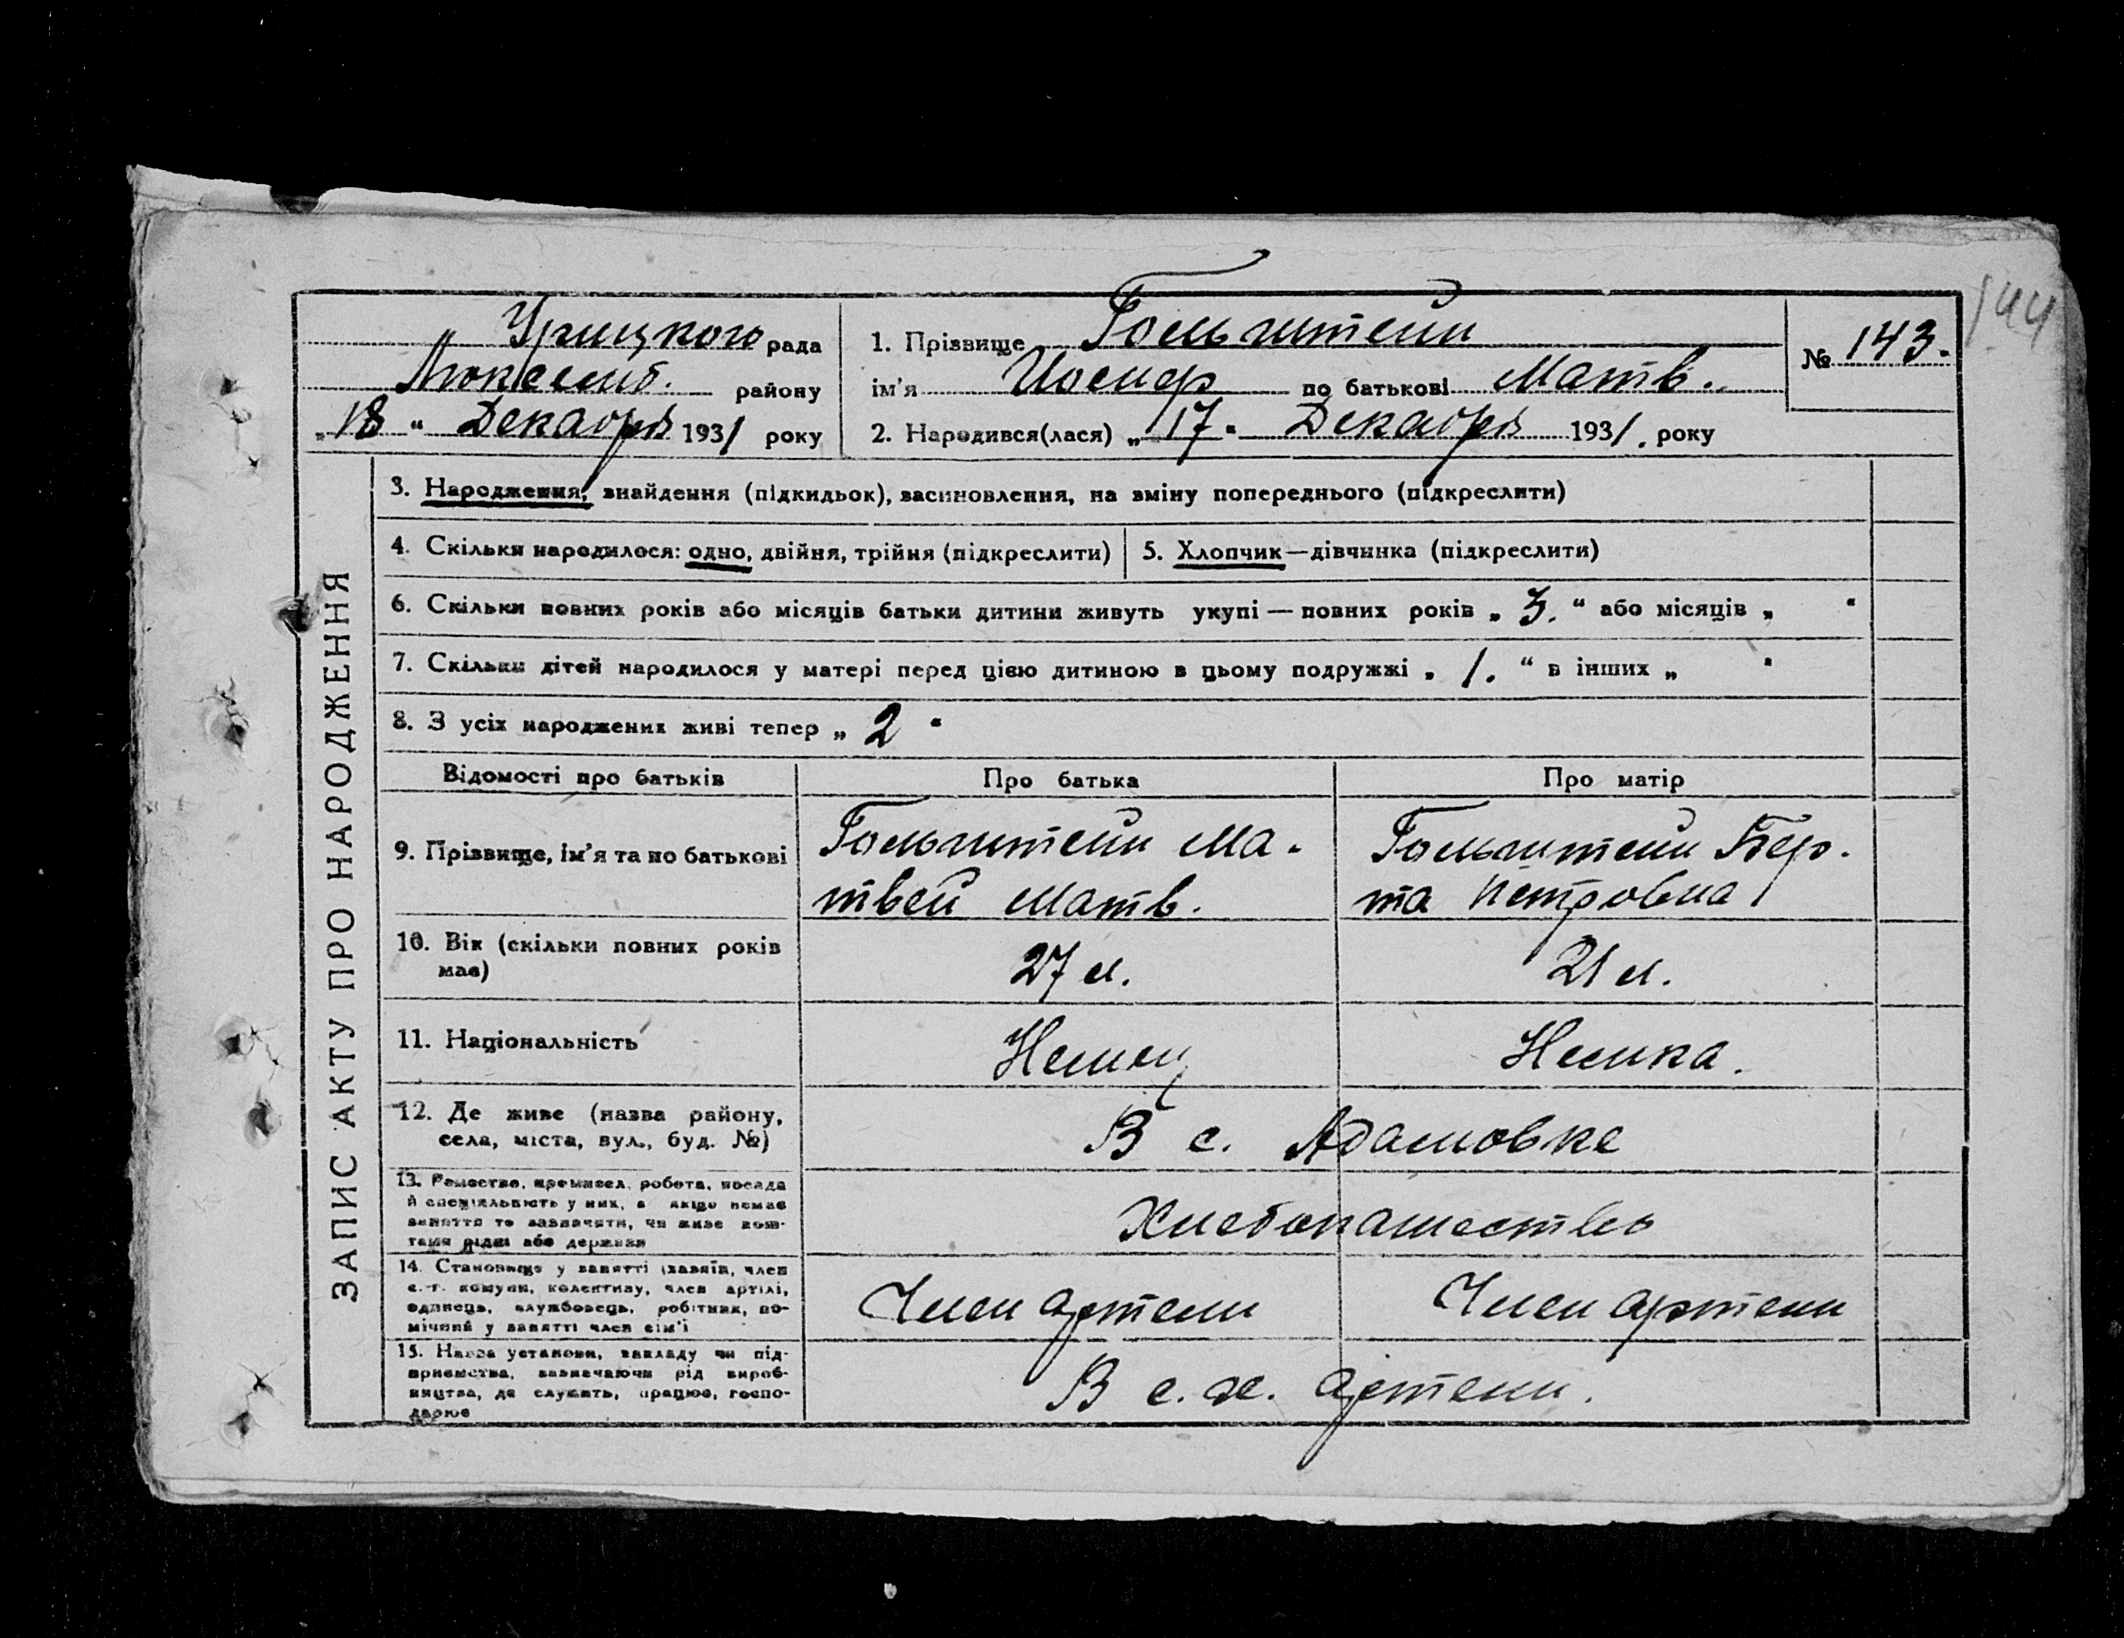 144
Урицкого рада
Люксемб. району
„18“ Декабря 1931 року
1. Прізвище Гольштейн
ім'я Иосиф по батькові Матв.
2. Народився(лася) „17“ Декабря 1931. року
№ 143.
ЗАПИС АКТУ ПРО НАРОДЖЕННЯ
3. Народження, знайдення (підкидьок), засиновлення, на зміну попереднього (підкреслити)
4. Скільки народилося: одно, двійня, трійня (підкреслити)
5. Хлопчик—дівчинка (підкреслити)
6. Скільки повних років або місяців батьки дитини живуть укупі — повних років „3.“ або місяців „ “
7. Скільки дітей народилося у матері перед цією дитиною в цьому подружжі „1.“ в інших „ “
8. З усіх народжених живі тепер „2“
Відомості про батьків
Про батька
Про матір
9. Прізвище, ім'я та по батькові
Гольштейн Ма-
твей Матв.
Гольштейн Бер-
та Петровна
10. Вік (скільки повних років
має)
27 л.
21 л.
11. Національність
Немец
Немка.
12. Де живе (назва району,
села, міста, вул., буд. №)
В с. Адамовке
13. Ремество, промисел, робота, посада
й спеціяльність у них, а якщо немає
заняття то зазначити, чи живе кош-
тами рідні або держави
Хлебопашество
14. Становище у занятті (хазяїн, член
с.-г. комуни, колективу, член артілі,
одинець, службовець, робітник, по-
мічний у занятті член сім'ї
Член артели
Член артели
15. Назва установи, закладу чи під-
приємства, зазначаючи рід вироб-
ництва, де служить, працює, госпо-
дарює
В с. х. артели.